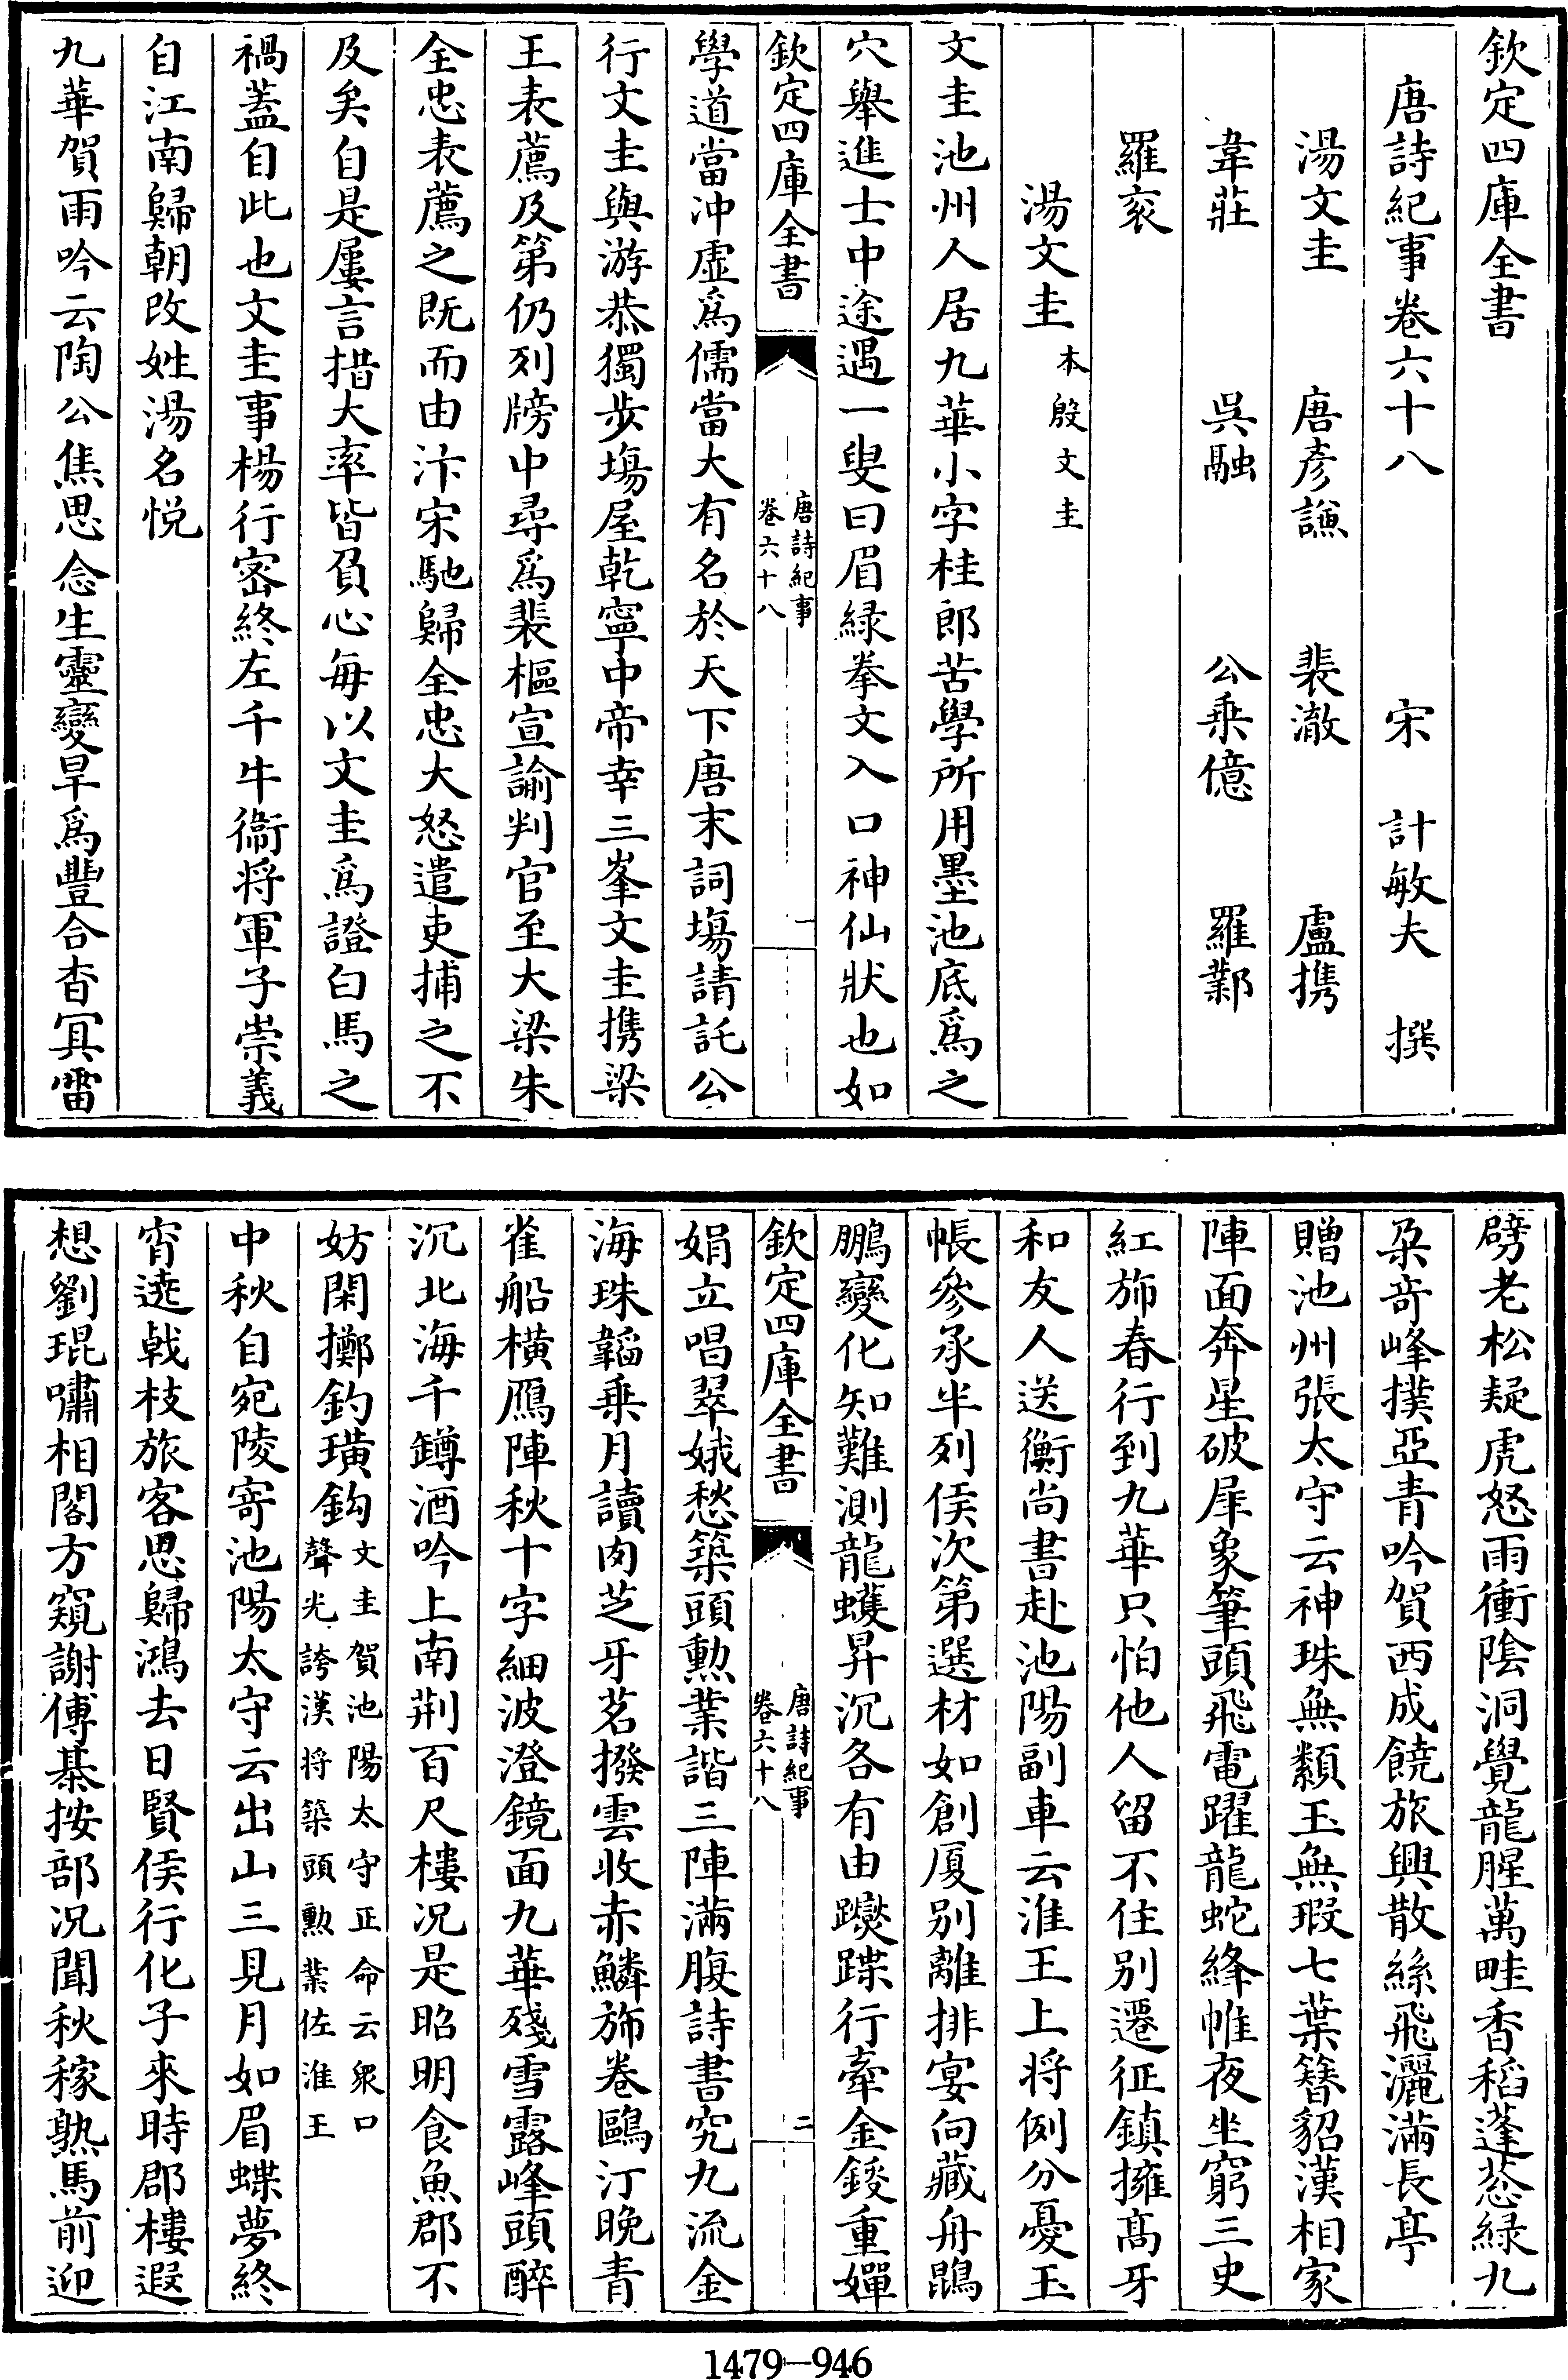 欽定四庫全書
唐詩紀事卷六十八　宋　計敏夫　撰
湯文圭　唐彥謙　裴澈　盧攜
韋莊　吳融　公乘億　羅鄴
羅衮
湯文圭本殷文圭
文圭池州人居九華小字桂郎苦學所用墨池底爲之
穴舉進士中途遇一叟曰眉緑拳文入口神仙狀也如
欽定四庫全書
唐詩紀事
卷六十八
一
學道當冲虛爲儒當大有名於天下唐末詞塲請託公
行文圭與游恭獨步塲屋乾寧中帝幸三峯文圭携梁
王表薦及第仍列牓中尋爲裴樞宣諭判官至大梁朱
全忠表薦之既而由汴宋馳歸全忠大怒遣吏捕之不
及矣自是屢言措大率皆負心每以文圭爲證白馬之
禍蓋自此也文圭事楊行密終左千牛衞將軍子崇義
自江南歸朝改姓湯名悅
九華賀雨吟云陶公焦思念生靈變旱爲豐合杳冥雷
劈老松疑虎怒雨衝陰洞覺龍腥萬畦香稻蓬葱緑九
朶奇峰撲亞青吟賀西成饒旅興散絲飛灑滿長亭
贈池州張太守云神珠無纇玉無瑕七葉簪貂漢相家
陣面奔星破犀象筆頭飛電躍龍蛇絳帷夜坐窮三史
紅斾春行到九華只怕他人留不住别遷征鎮擁髙牙
和友人送衡尚書赴池陽副車云淮王上將例分憂玉
帳參承半列侯次第選材如創厦别離排宴向藏舟鵾
鵬變化知難測龍蠖昇沉各有由躞蹀行牽金鋄重嬋
欽定四庫全書
唐詩紀事
卷六十八
二
娟立唱翠娥愁築頭勲業諧三陣滿腹詩書究九流金
海珠韜乗月讀肉芝牙茗撥雲收赤鱗斾卷鷗汀晚青
雀船横鴈陣秋十字細波澄鏡面九華殘雪露峰頭醉
沉北海千鐏酒吟上南荆百尺樓况是昭明食魚郡不
妨閑擲釣璜鈎文圭賀池陽太守正命云衆口
聲光誇漢將築頭勲業佐淮王
中秋自宛陵寄池陽太守云出山三見月如眉蝶夢終
宵遶戟枝旅客思歸鴻去日賢侯行化子來時郡樓遐
想劉琨嘯相閣方窺謝傅棊按部况聞秋稼熟馬前迎
1479—946